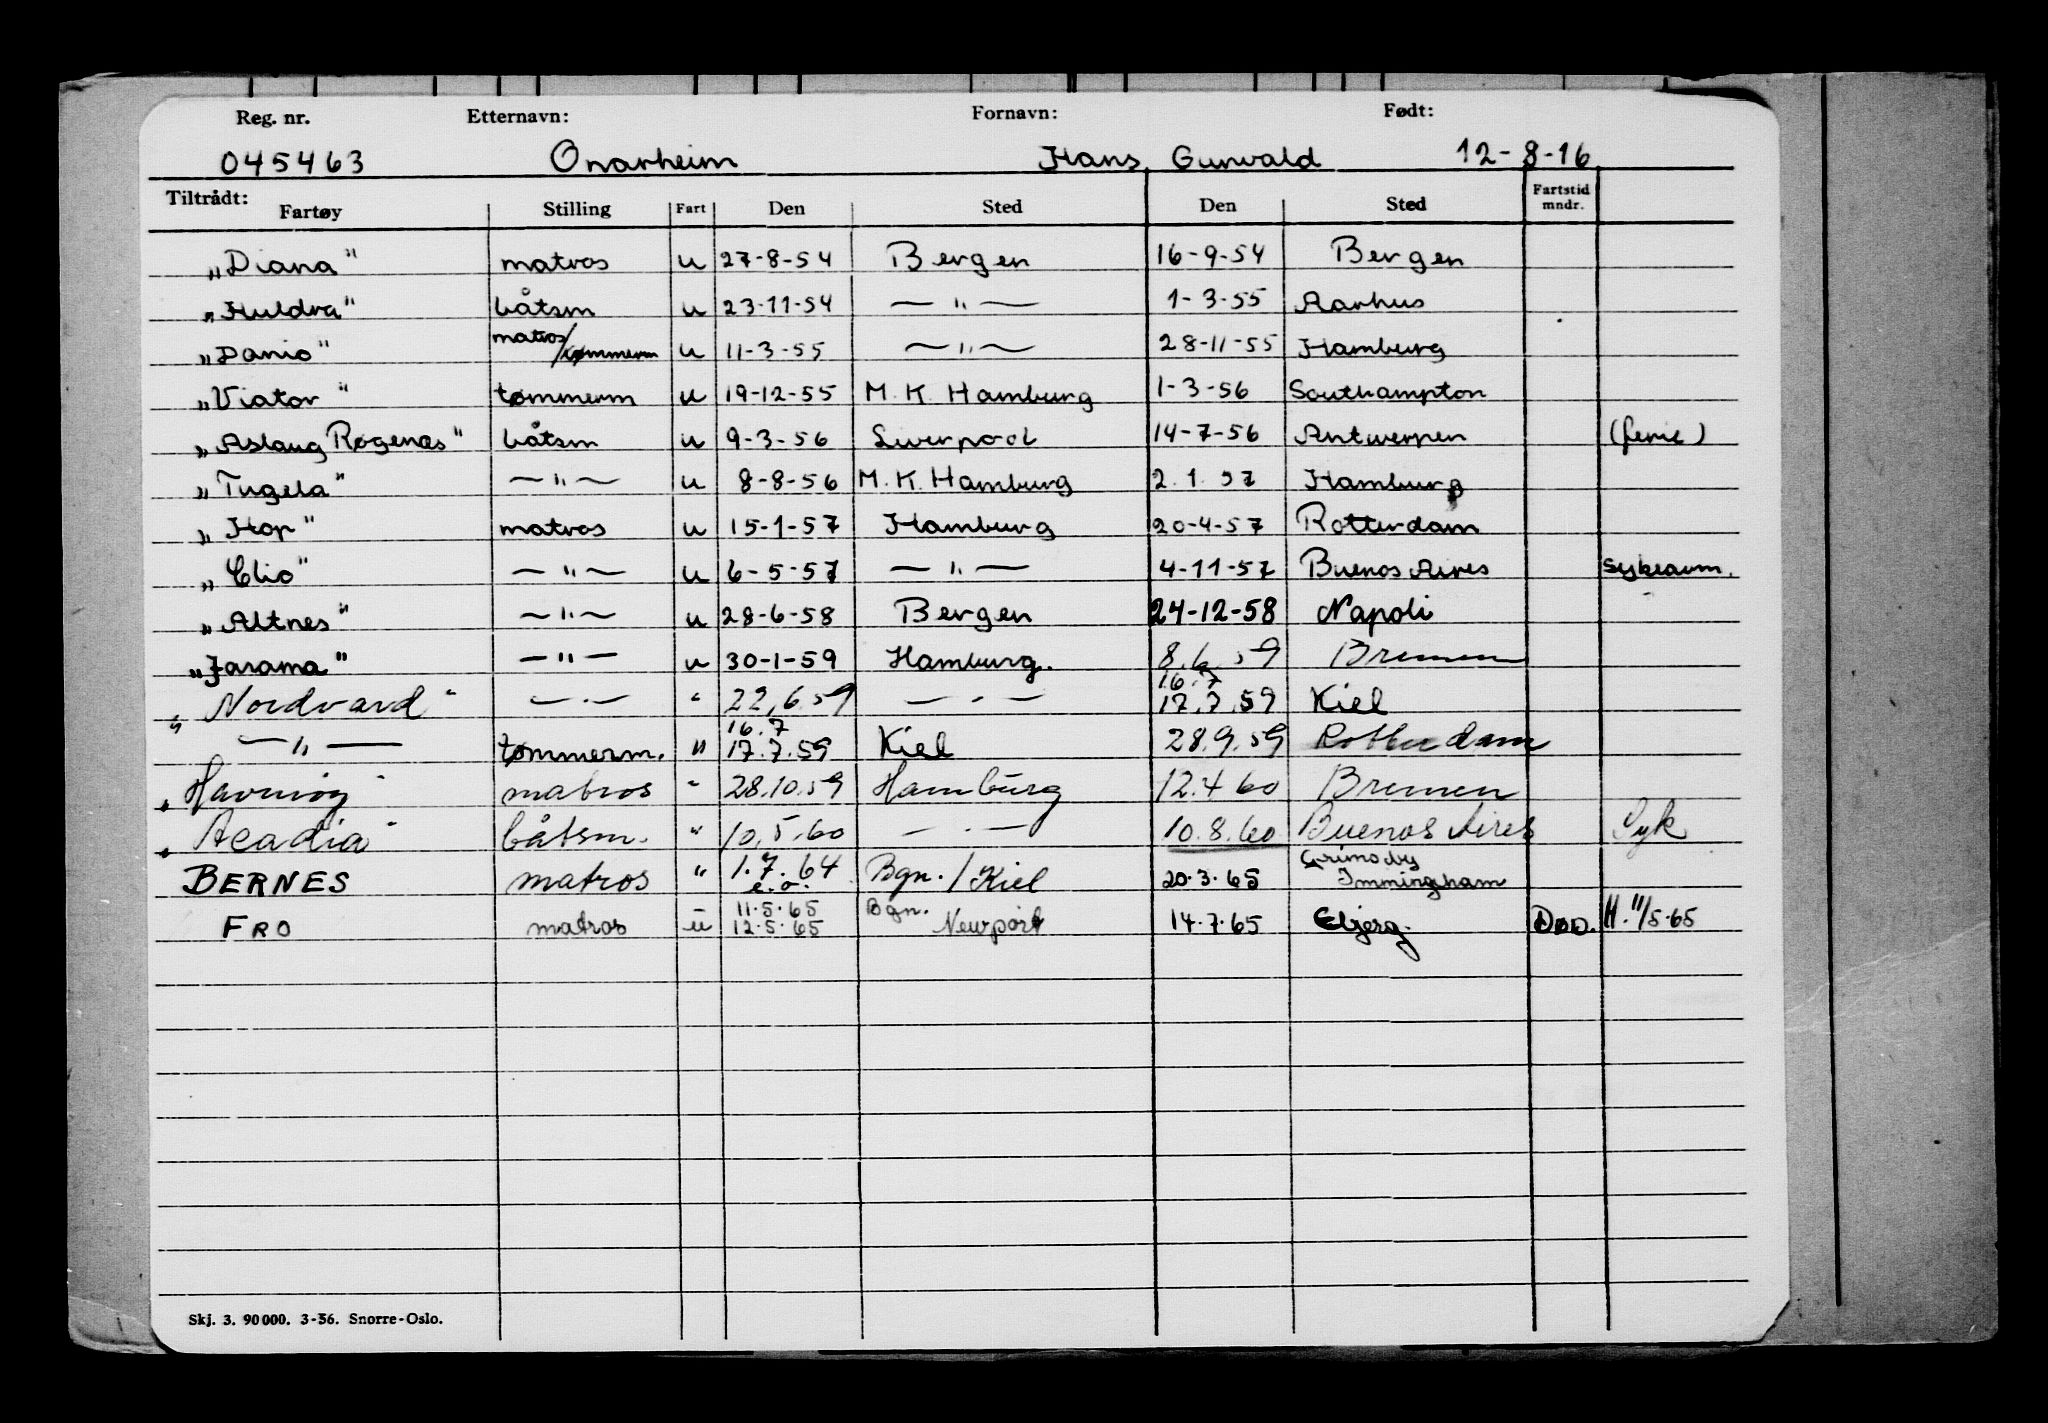 Reg. nr. Etternavn: Fornavn: Født:
045463 Onarheim Hans Gunvald 12-8-16
Tiltrådt: Fartøy Stilling Fart Den Sted Den Sted Fartstid mndr.
„Diana" matros u 27-8-54 Bergen 16-9-54 Bergen
„Huldra" båtsm u 23-11-54 — " — 1-3-55 Aarhus
„Danio" matros/tømmerm u 11-3-55 — " — 28-11-55 Hamburg
„Viator" tømmerm u 19-12-55 M.K. Hamburg 1-3-56 Southampton
„Aslaug Rogenæs" båtsm u 9-3-56 Liverpool 14-7-56 Antwerpen (ferie)
„Tugela" — " — u 8-8-56 M.K. Hamburg 2.1.57 Hamburg
„Hop" matros u 15-1-57 Hamburg 20-4-57 Rotterdam
„Clio" — " — u 6-5-57 — " — 4-11-57 Buenos Aires sykeavm.
„Altnes" — " — u 28-6-58 Bergen 24-12-58 Napoli
„Jarama" — " — u 30-1-59 Hamburg. 8.6.59 Bremen
„Nordvard" — " — " 22.6.59 — " — 16.7 17.7.59 Kiel
— " — tømmerm. " 16.7 17.7.59 Kiel 28.9.59 Rotterdam
„Havmøy" matros " 28.10.59 Hamburg 12.4 60 Bremen
„Acadia" båtsm. " 10.5.60 — " — 10.8.60 Buenos Aires Syk
BERNES matros " 1.7.64 e.o. Bgn. / Kiel 20.3.65 Grimsby Immingham
FRO matros ü 11.5.65 12.5.65 Bgn. Newport 14.7.65 Ebjerg. DØD. M. 11/5-65
Skj. 3. 90000. 3-56. Snorre-Oslo.